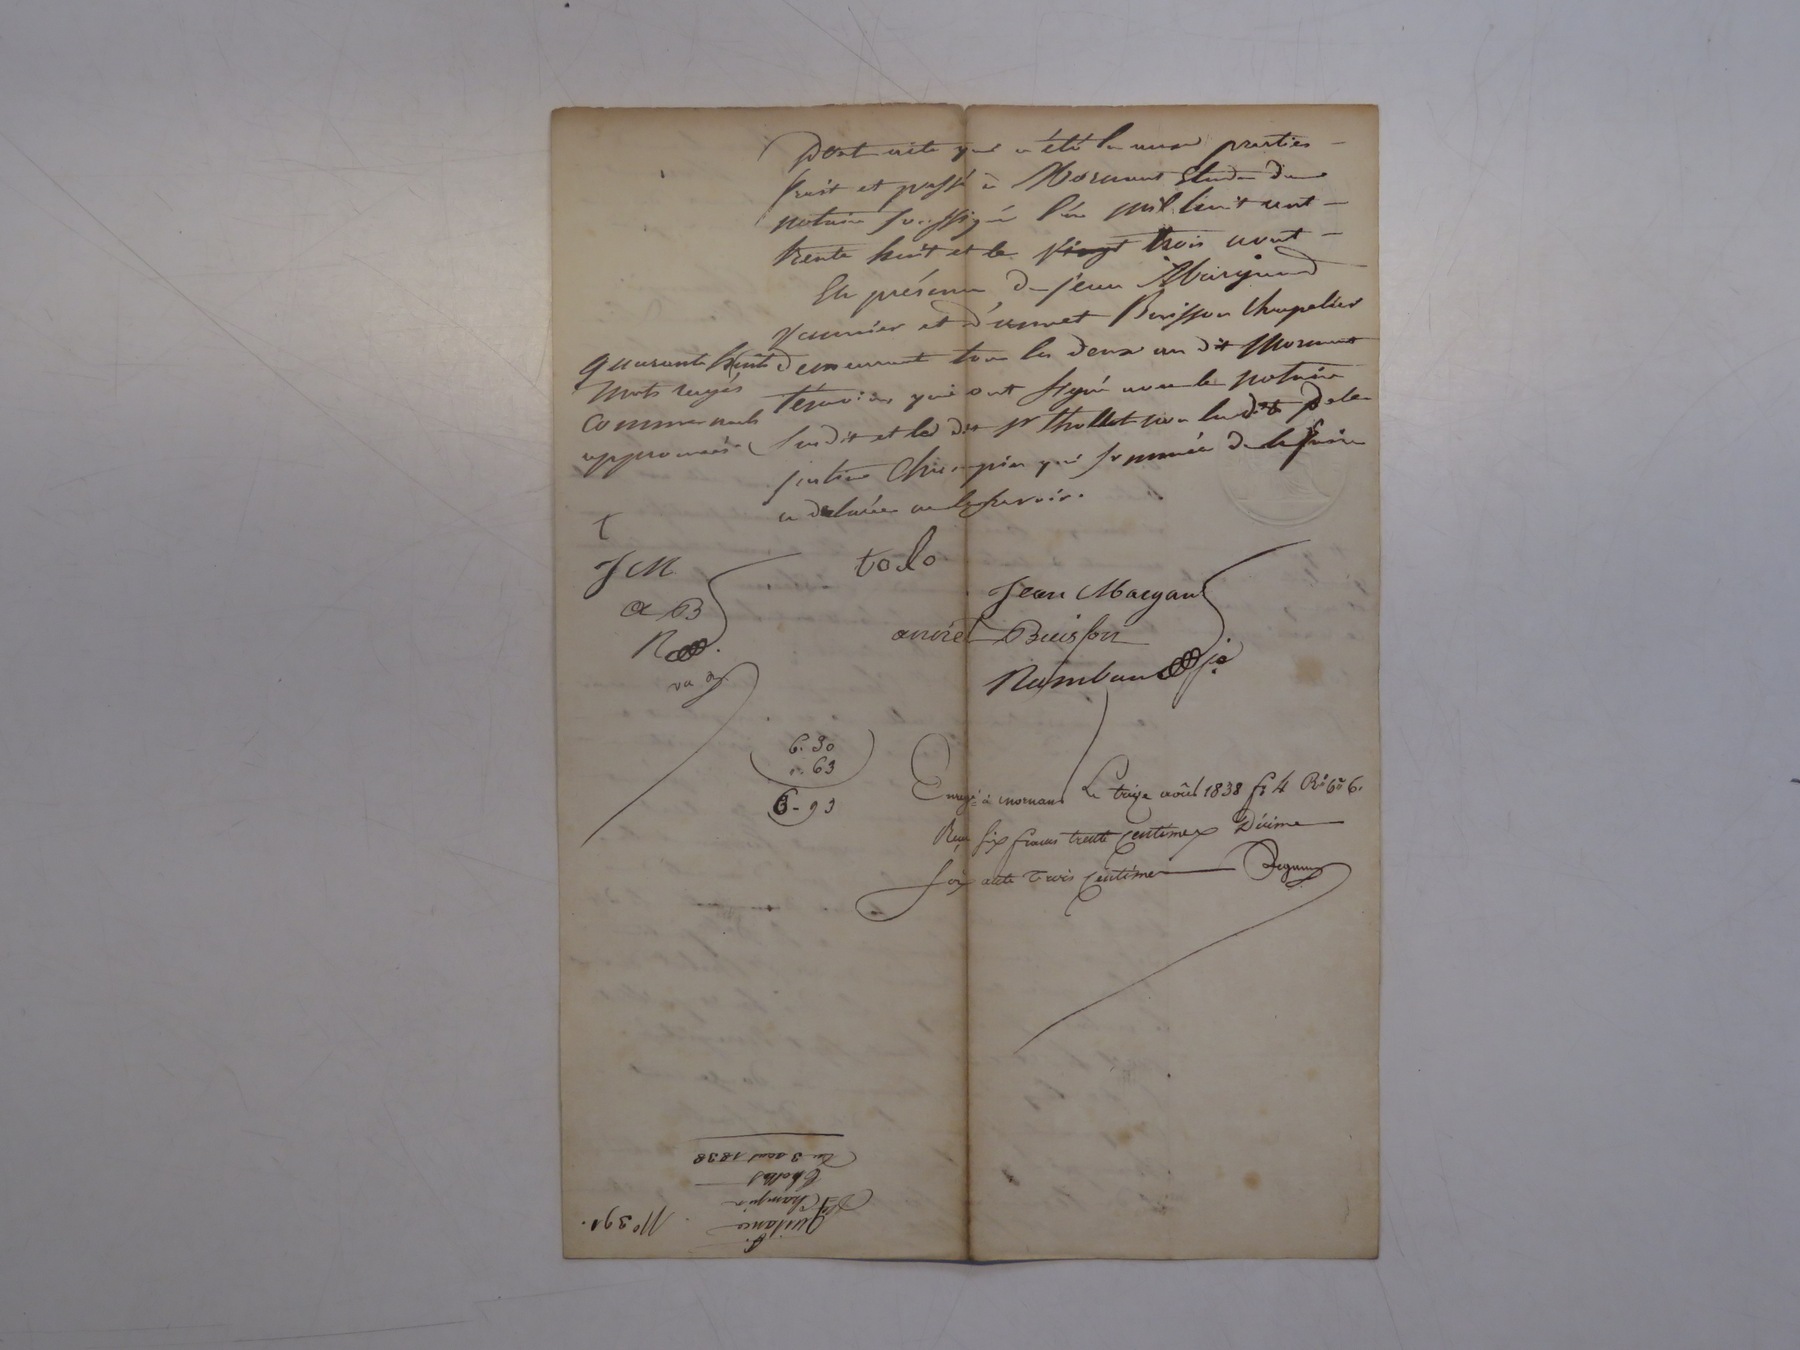 Dont acte qui a été lu aux parties
fait et passé à Mornant Etude du
notaire soussigné l'an mil huit cent
trente huit et le vingt trois aout
En présence de Jean Margand
et d'annet Buisson Chapelier
demeurant tous les deux au dit Mornant
témoins qui ont signé avec le notaire
susdit et le dit sr Thollet non la dite
Champin qui sommée de le faire
a déclarée ne le savoir.
quarante huit
mots rayés
comme nuls
approuvés
J M
a B
R
tolo
Jean Margand
annet Buisson
Rambaud
6. 30
". 63
6 - 93
Enregé à mornant Le treize août 1838 fo 4 Ro 6
Reçu six francs trente centimes Décime
soixante trois centimes
No 391.
quittance
Champin
Thollet
du 3 aout 1838